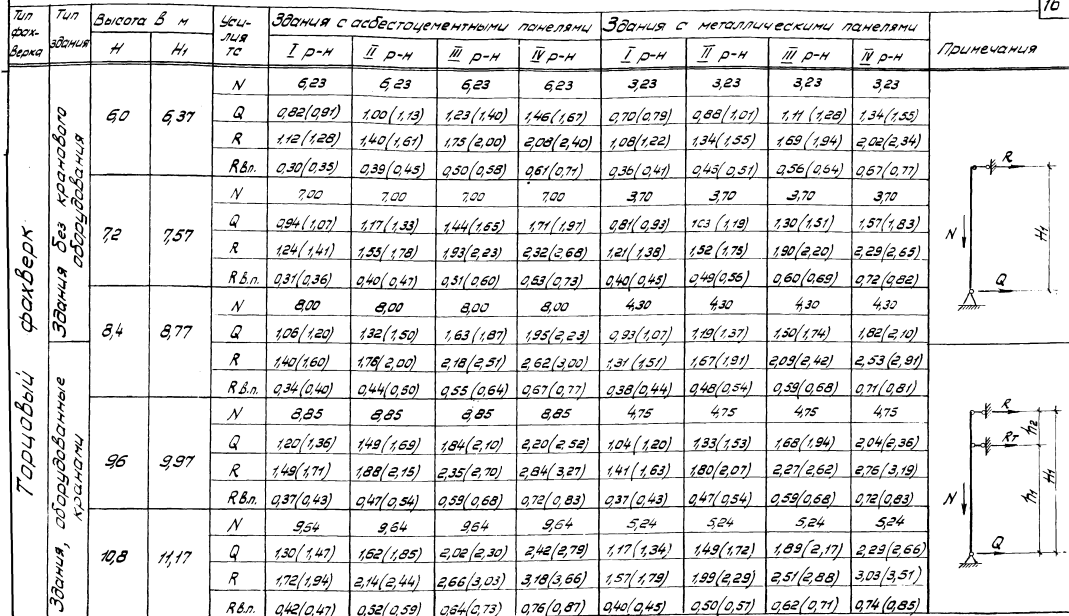 16
Тип фахверка Тип здания Высота в м Усилия тс Здания с асбестоцементными панелями Здания с металлическими панелями Примечания
H H1 I р-н II р-н III р-н IV р-н I р-н II р-н III р-н IV р-н
Торцовый фахверк
Здания без кранового оборудования
6,0 6,37
N 6,23 6,23 6,23 6,23 3,23 3,23 3,23 3,23
Q 0,82(0,91) 1,00(1,13) 1,23(1,40) 1,46(1,67) 0,70(0,79) 0,88(1,01) 1,11(1,28) 1,34(1,55)
R 1,12(1,28) 1,40(1,61) 1,75(2,00) 2,08(2,40) 1,08(1,22) 1,34(1,55) 1,69(1,94) 2,02(2,34)
Rв.п. 0,30(0,35) 0,39(0,45) 0,50(0,58) 0,61(0,71) 0,36(0,41) 0,45(0,51) 0,56(0,64) 0,67(0,77)
7,2 7,57
N 7,00 7,00 7,00 7,00 3,70 3,70 3,70 3,70
Q 0,94(1,07) 1,17(1,33) 1,44(1,65) 1,71(1,97) 0,81(0,93) 1,03(1,19) 1,30(1,51) 1,57(1,83)
R 1,24(1,41) 1,55(1,78) 1,93(2,23) 2,32(2,68) 1,21(1,38) 1,52(1,75) 1,90(2,20) 2,29(2,65)
Rв.п. 0,31(0,36) 0,40(0,47) 0,51(0,60) 0,63(0,73) 0,40(0,45) 0,49(0,56) 0,60(0,69) 0,72(0,82)
8,4 8,77
N 8,00 8,00 8,00 8,00 4,30 4,30 4,30 4,30
Q 1,06(1,20) 1,32(1,50) 1,63(1,87) 1,95(2,23) 0,93(1,07) 1,19(1,37) 1,50(1,74) 1,82(2,10)
R 1,40(1,60) 1,76(2,00) 2,18(2,51) 2,62(3,00) 1,31(1,51) 1,67(1,91) 2,09(2,42) 2,53(2,91)
Rв.п. 0,34(0,40) 0,44(0,50) 0,55(0,64) 0,67(0,77) 0,38(0,44) 0,48(0,54) 0,59(0,68) 0,71(0,81)
Здания, оборудованные кранами
9,6 9,97
N 8,85 8,85 8,85 8,85 4,75 4,75 4,75 4,75
Q 1,20(1,36) 1,49(1,69) 1,84(2,10) 2,20(2,52) 1,04(1,20) 1,33(1,53) 1,68(1,94) 2,04(2,36)
R 1,49(1,71) 1,88(2,15) 2,35(2,70) 2,84(3,27) 1,41(1,63) 1,80(2,07) 2,27(2,62) 2,76(3,19)
Rв.п. 0,37(0,43) 0,47(0,54) 0,59(0,68) 0,72(0,83) 0,37(0,43) 0,47(0,54) 0,59(0,68) 0,72(0,83)
10,8 11,17
N 9,64 9,64 9,64 9,64 5,24 5,24 5,24 5,24
Q 1,30(1,47) 1,62(1,85) 2,02(2,30) 2,42(2,79) 1,17(1,34) 1,49(1,72) 1,89(2,17) 2,29(2,66)
R 1,72(1,94) 2,14(2,44) 2,66(3,03) 3,18(3,66) 1,57(1,79) 1,99(2,29) 2,51(2,88) 3,03(3,51)
Rв.п. 0,42(0,47) 0,52(0,59) 0,64(0,73) 0,76(0,87) 0,40(0,45) 0,50(0,57) 0,62(0,71) 0,74(0,85)
R
N
H1
Q
R
Rт
h2
h1
H1
N
Q